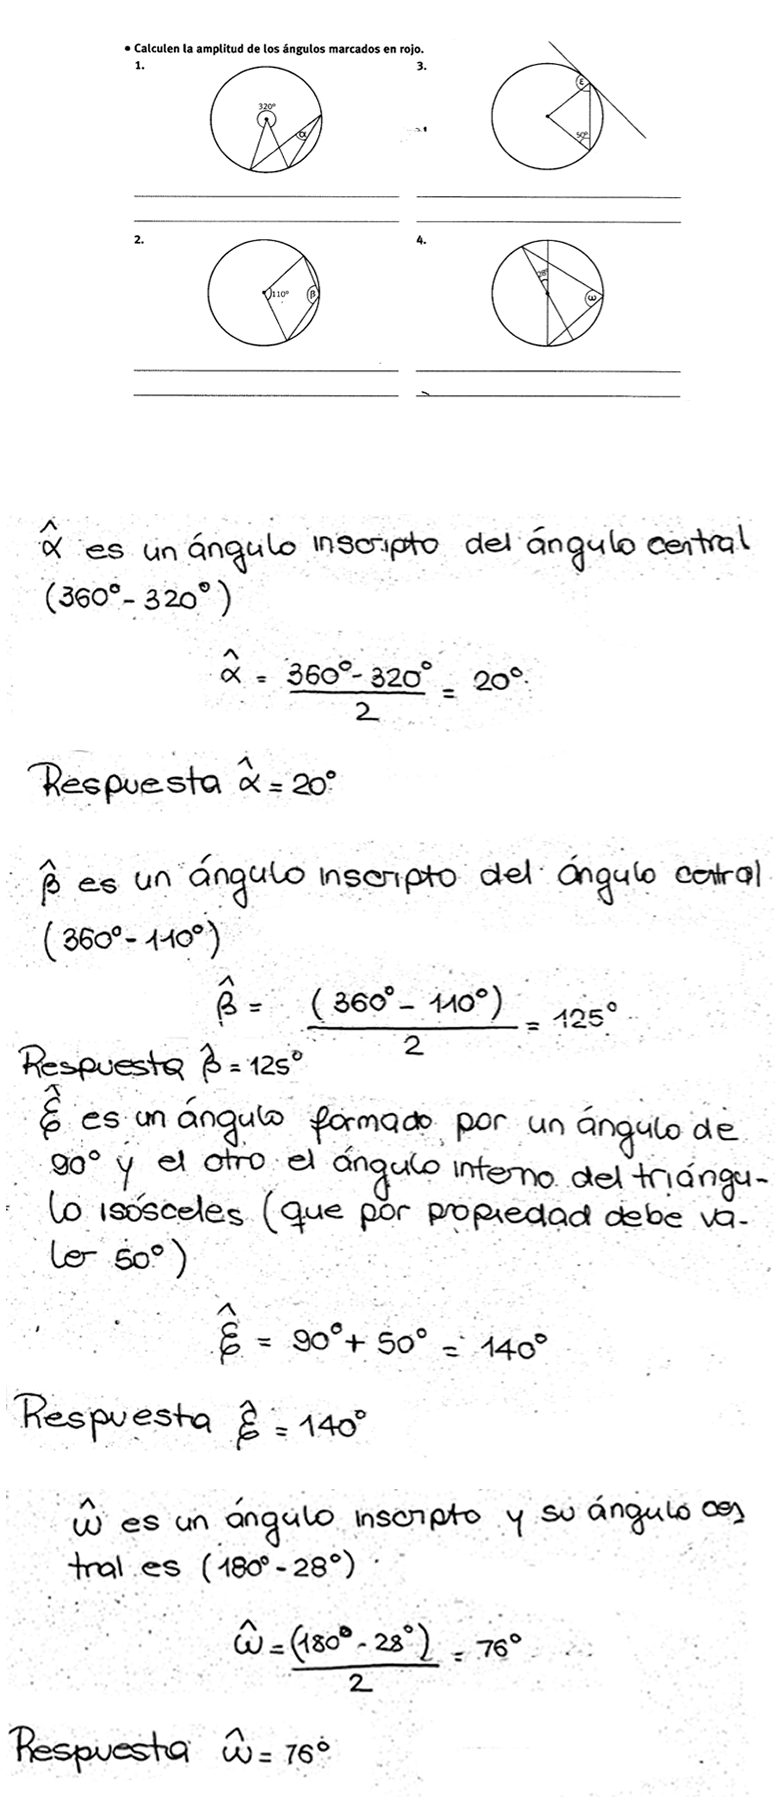 • Calculen la amplitud de los ángulos marcados en rojo.
1.
3.
320°
α
ε
50°
2.
4.
110°
β
28°
ω
α̂ es un ángulo inscripto del ángulo central
(360° - 320°)
α̂ = (360° - 320°)/2 = 20°
Respuesta α̂ = 20°
β̂ es un ángulo inscripto del ángulo cetral
(360° - 110°)
β̂ = (360° - 110°)/2 = 125°
Respuesta β̂ = 125°
ε̂ es un ángulo formado por un ángulo de
90° y el otro el ángulo interno del triángu-
lo isósceles (que por propiedad debe va-
ler 50°)
ε̂ = 90° + 50° = 140°
Respuesta ε̂ = 140°
ω̂ es un ángulo inscripto y su ángulo cen
tral es (180° - 28°)
ω̂ = (180° - 28°)/2 = 76°
Respuesta ω̂ = 76°